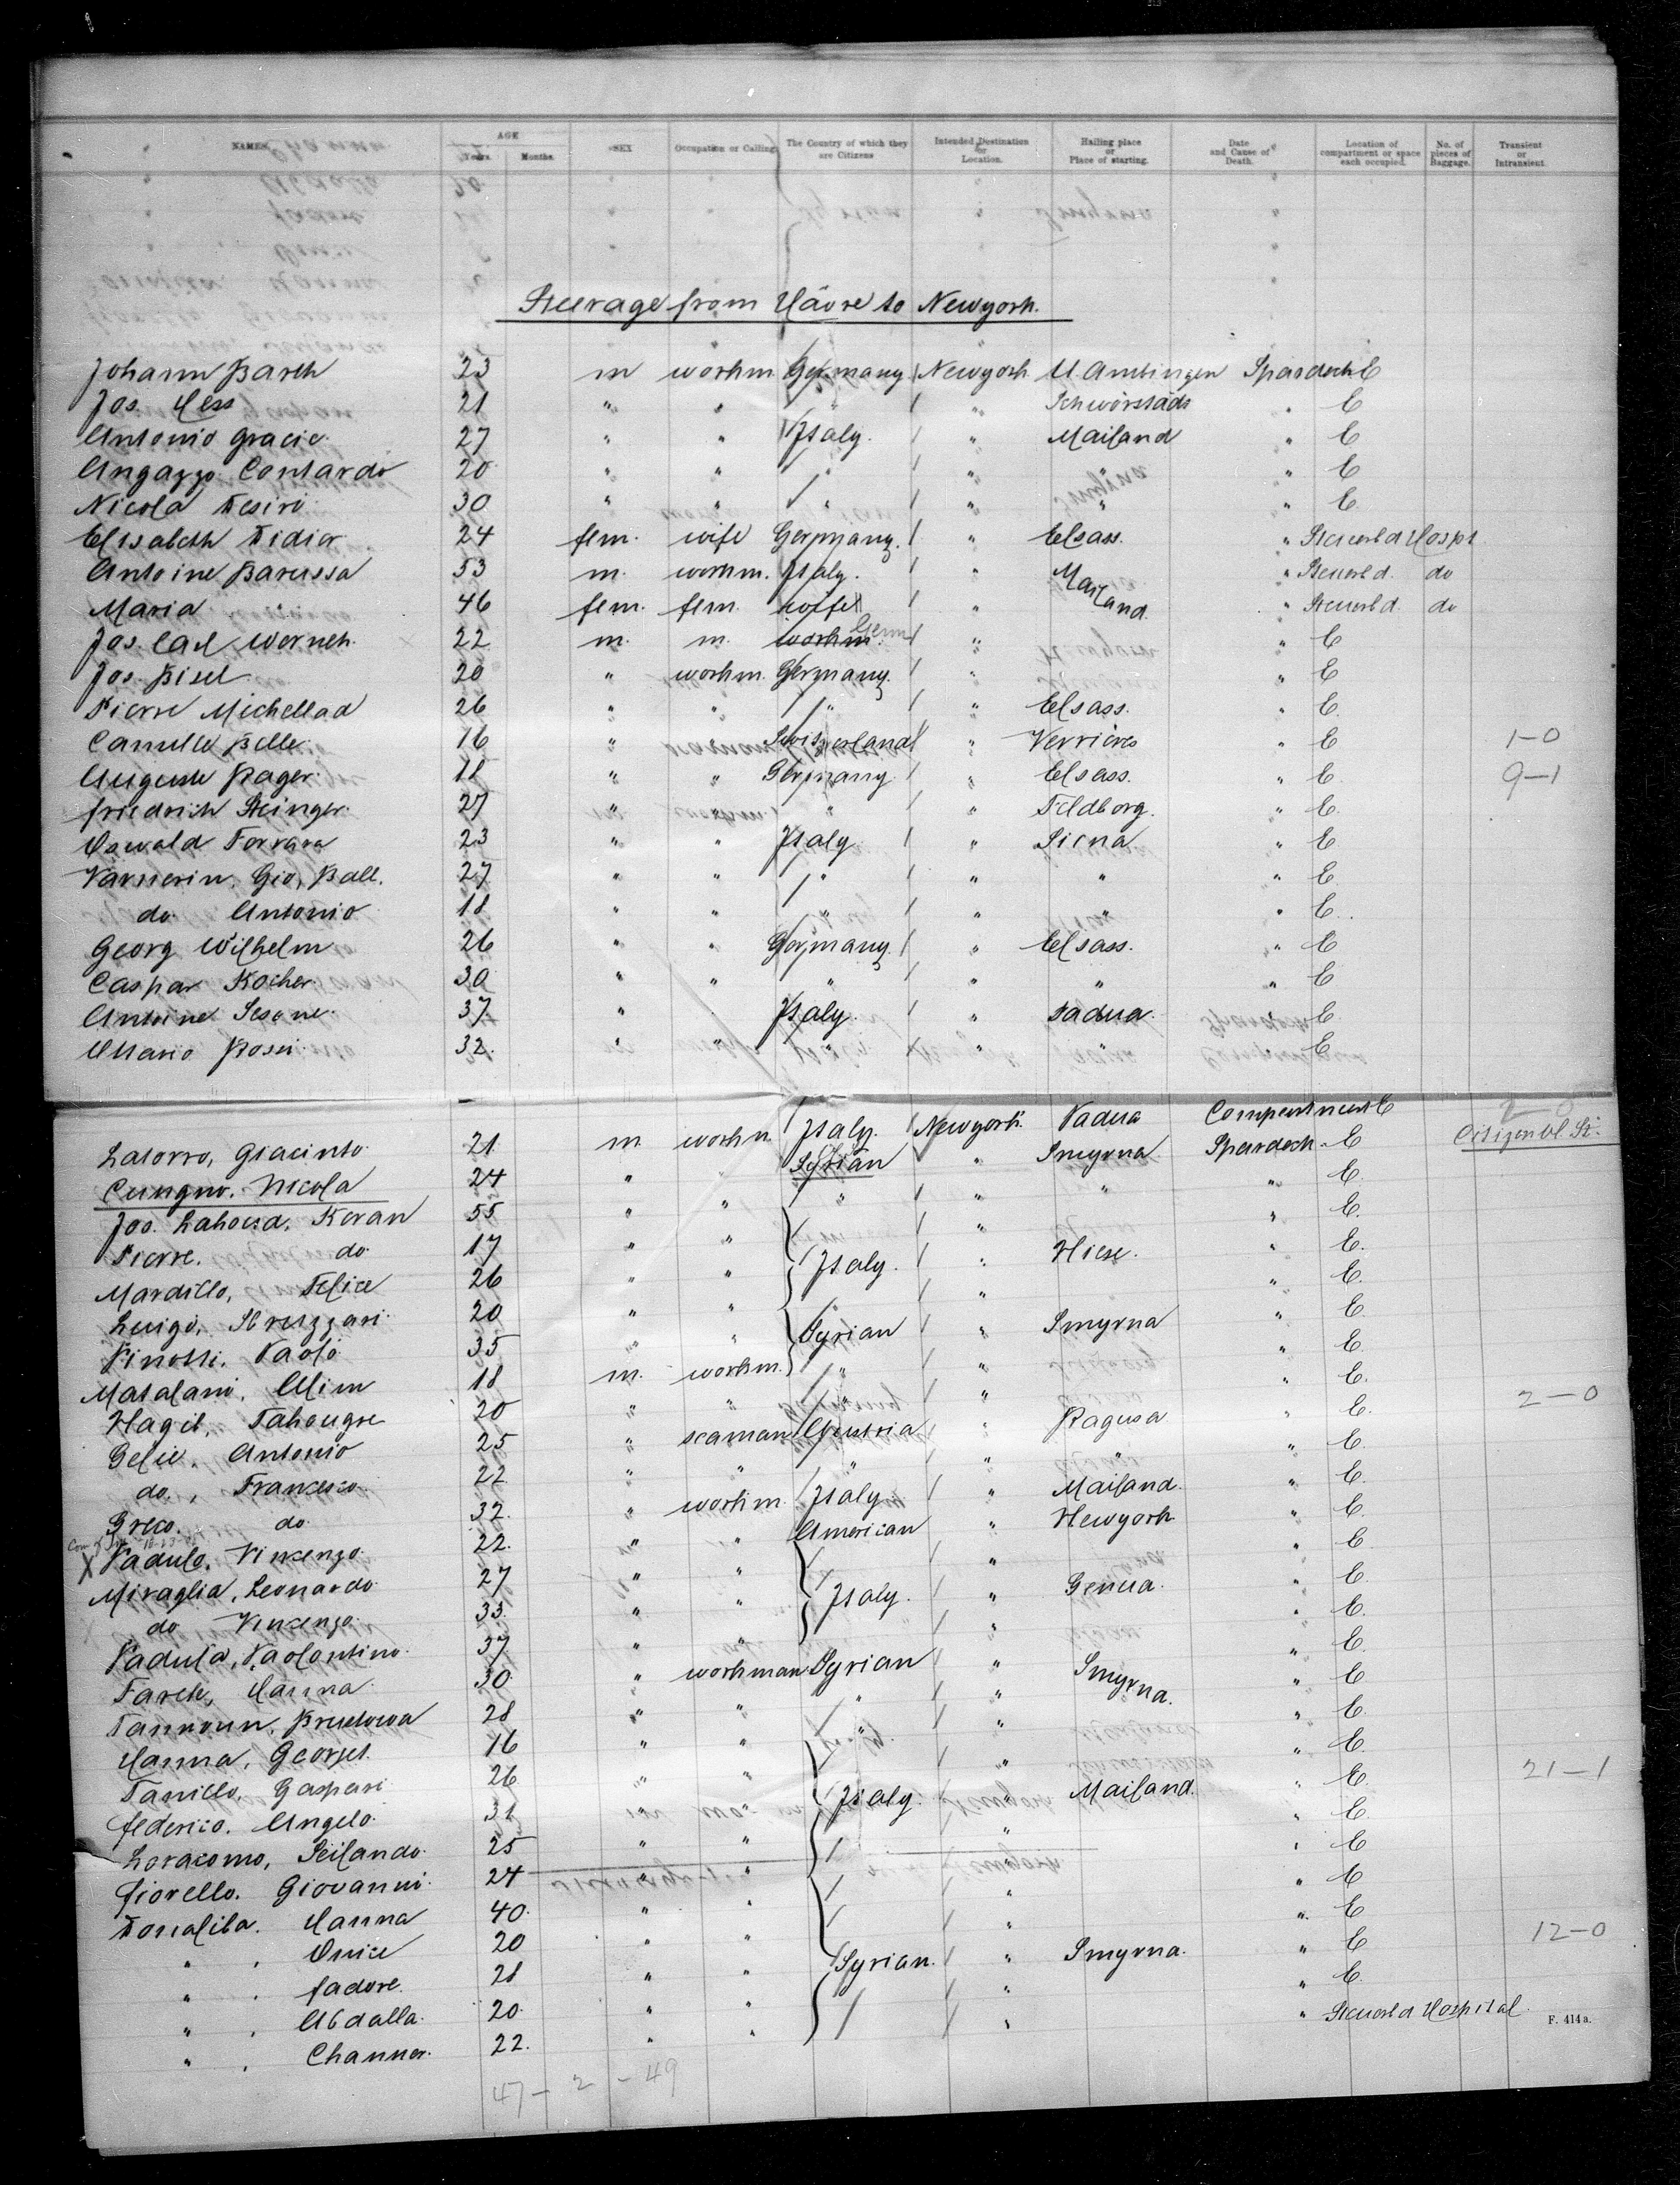 NAMES AGE Years. Months. SEX Occupation or Calling. The Country of which they are Citizens Intended Destination or Location. Hailing place or Place of starting. Date and Cause of Death. Location of compartment or space each occupied. No. of pieces of Baggage. Transient or Intransient.
Steerage from Hâvre to Newyork.
Johann Barth 23 m workm Germany Newyork Spardeck E
Jos. Hess 21 " " " " Schwörstads " E
Antonio Gracie 27 " " Italy. " Mailand " E
Angazzo Contardo 20 " " " " " " E
Nicola Desiro 30 " " " " " " E
Elisabeth Didier 24 fem. wife Germany. " Elsass. "
Antoine Barussa 53 m. workm. Italy. " Mailand. " do
Maria " 46 fem. fem. wife " " do
Jos. Carl Werneh. 22 m. m. workm. Germ " " E
Jos. Bisel 20 " workm. Germany. " " E
Pierre Michellod 26 " " " " Elsass. " E
Camille Belle 16 " Switzerland " Verrières " E 1-0
Auguste Rager 18 " " Germany " Elsass. " E 9-1
Friedrich Steinger 27 " " " Feldborg. " E
Oswald Forrara 23 " " Italy " Siena " E
Varnerin, Gio, Batt. 27 " " " " " " E
do Antonio 18 " " " " " " E
Georg Wilhelm 26 " " Germany. " Elsass. " E
Caspar Kocher 30 " " " " " " E
Antoine Sesone 37 " Italy. " Padua E
Mario Rossi 32. " " " " " E
Latorro, Giacinto 21 m workm. Italy. Newyork. Padua Compartment E 2-0
Cungno, Nicola 24 " " Syrian " Smyrna Spardeck. E Citizen U. St.
Jos. Lahoud, Keran 55 " " " " " " E
Pierre. do 17 " " " " E
Mardillo, Felice 26 " " Italy. " Hiese. " E
Luigi, Struzzari 20 " " " " E
Pinotti, Paolo 35 " " Syrian " Smyrna " E
Matalani, Elim 18 m. workm. " " " E
Hagib, Tahougre 20 " " " " " E 2-0
Gelic, Antonio 25 " seaman Austria " Ragusa " E
do, Francesco 22 " " " " " " E
Greco. do 32. " workm. Italy " Mailand. " E
X Padulo, Vincenzo 22. " " American " Newyork " E
Miraglia, Leonardo 27 " " " " E
do Vincenzo 33. " " Italy. " Genua. " E
Padula, Paolontino 37 " " " " E
Fareh, Hanna 30 " workman Syrian " Smyrna. " E
Tannoun, 28 " " " " " E
Hanna, Georges 16 " " " " " E
Tanillo, Gaspari 26 " " " E 21-1
Federico, Angelo 31 Italy. " Mailand. " E
Loracomo, 25 " " " " E
Fiorello, Giovanni 24 " " " E
Hanna 40 " " " " E
" Onice 20 " " " " E 12-0
" Fadore 28 " " Syrian. " Smyrna. " E
" Abdalla 20 " " " " E
" Channer 22. " " " " Hospital
47-2-49
F. 414a.